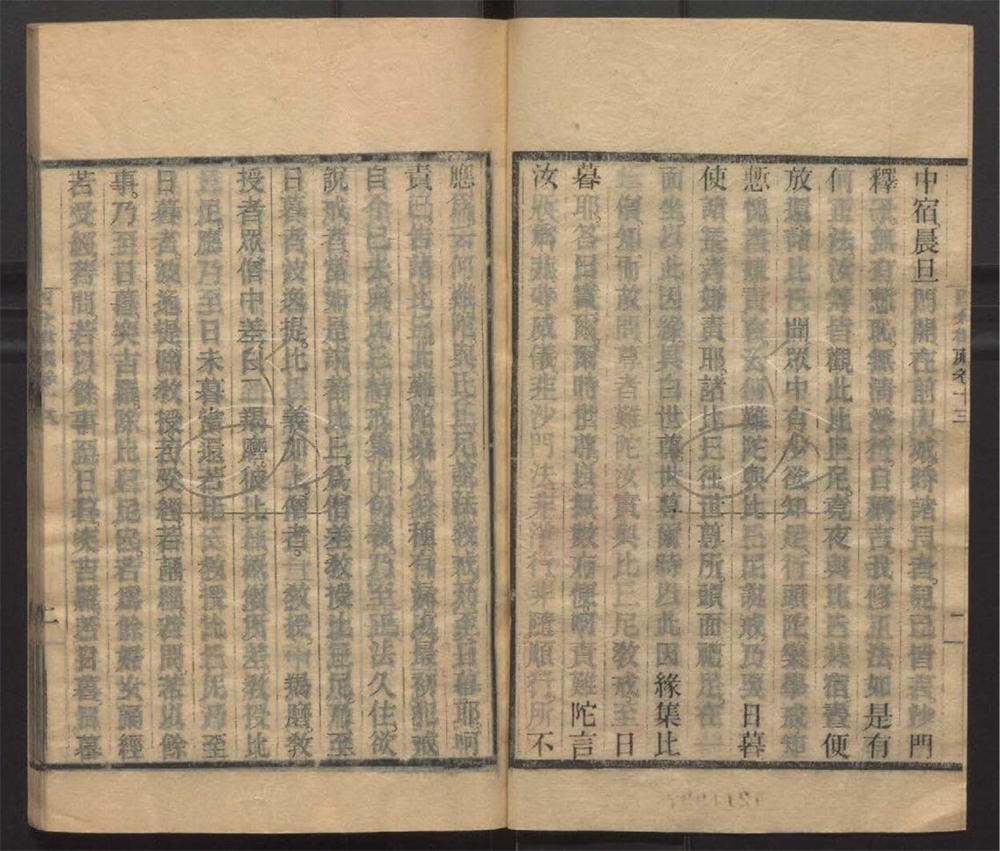 中宿晨旦門開在前入城時諸居士見已皆言沙門
釋子無有慚恥無清淨行自稱言我修正法如是有
何正法汝等皆觀此比丘尼竟夜與比丘共宿晝便
放還諸比丘聞眾中有少欲知足行頭陀樂學戒知
慙愧者嫌責言云何難陀與比丘尼說戒乃至日暮
使諸長者嫌責耶諸比丘往世尊所頭面禮足在一
面坐以此因緣具白世尊世尊爾時以此因緣集比
丘僧知而故問尊者難陀汝實與比丘尼教戒至日
暮耶答曰實爾爾時世尊以無數方便呵責難陀言
汝所為非非威儀非沙門法非淨行非隨順行所不
應為云何難陀與比丘尼說法教戒乃至日暮耶呵
責已告諸比丘此難陀癡人多種有漏處最初犯戒
自今已去與比丘結戒集十句義乃至正法久住欲
說戒者當如是說若比丘為僧差教授比丘尼乃至
日暮者波逸提比丘義如上僧者一教授中羯磨教
授者眾僧中差白二羯磨彼比丘為僧所差教授比
丘尼應乃至日未暮當還若比丘教授比丘尼乃至
日暮者波逸提除教授若受經若誦經若問若以餘
事乃至日暮突吉羅除比丘尼已若為餘婦女誦經
若受經若問若以餘事至日暮突吉羅若日暮日暮
四分律藏卷十三